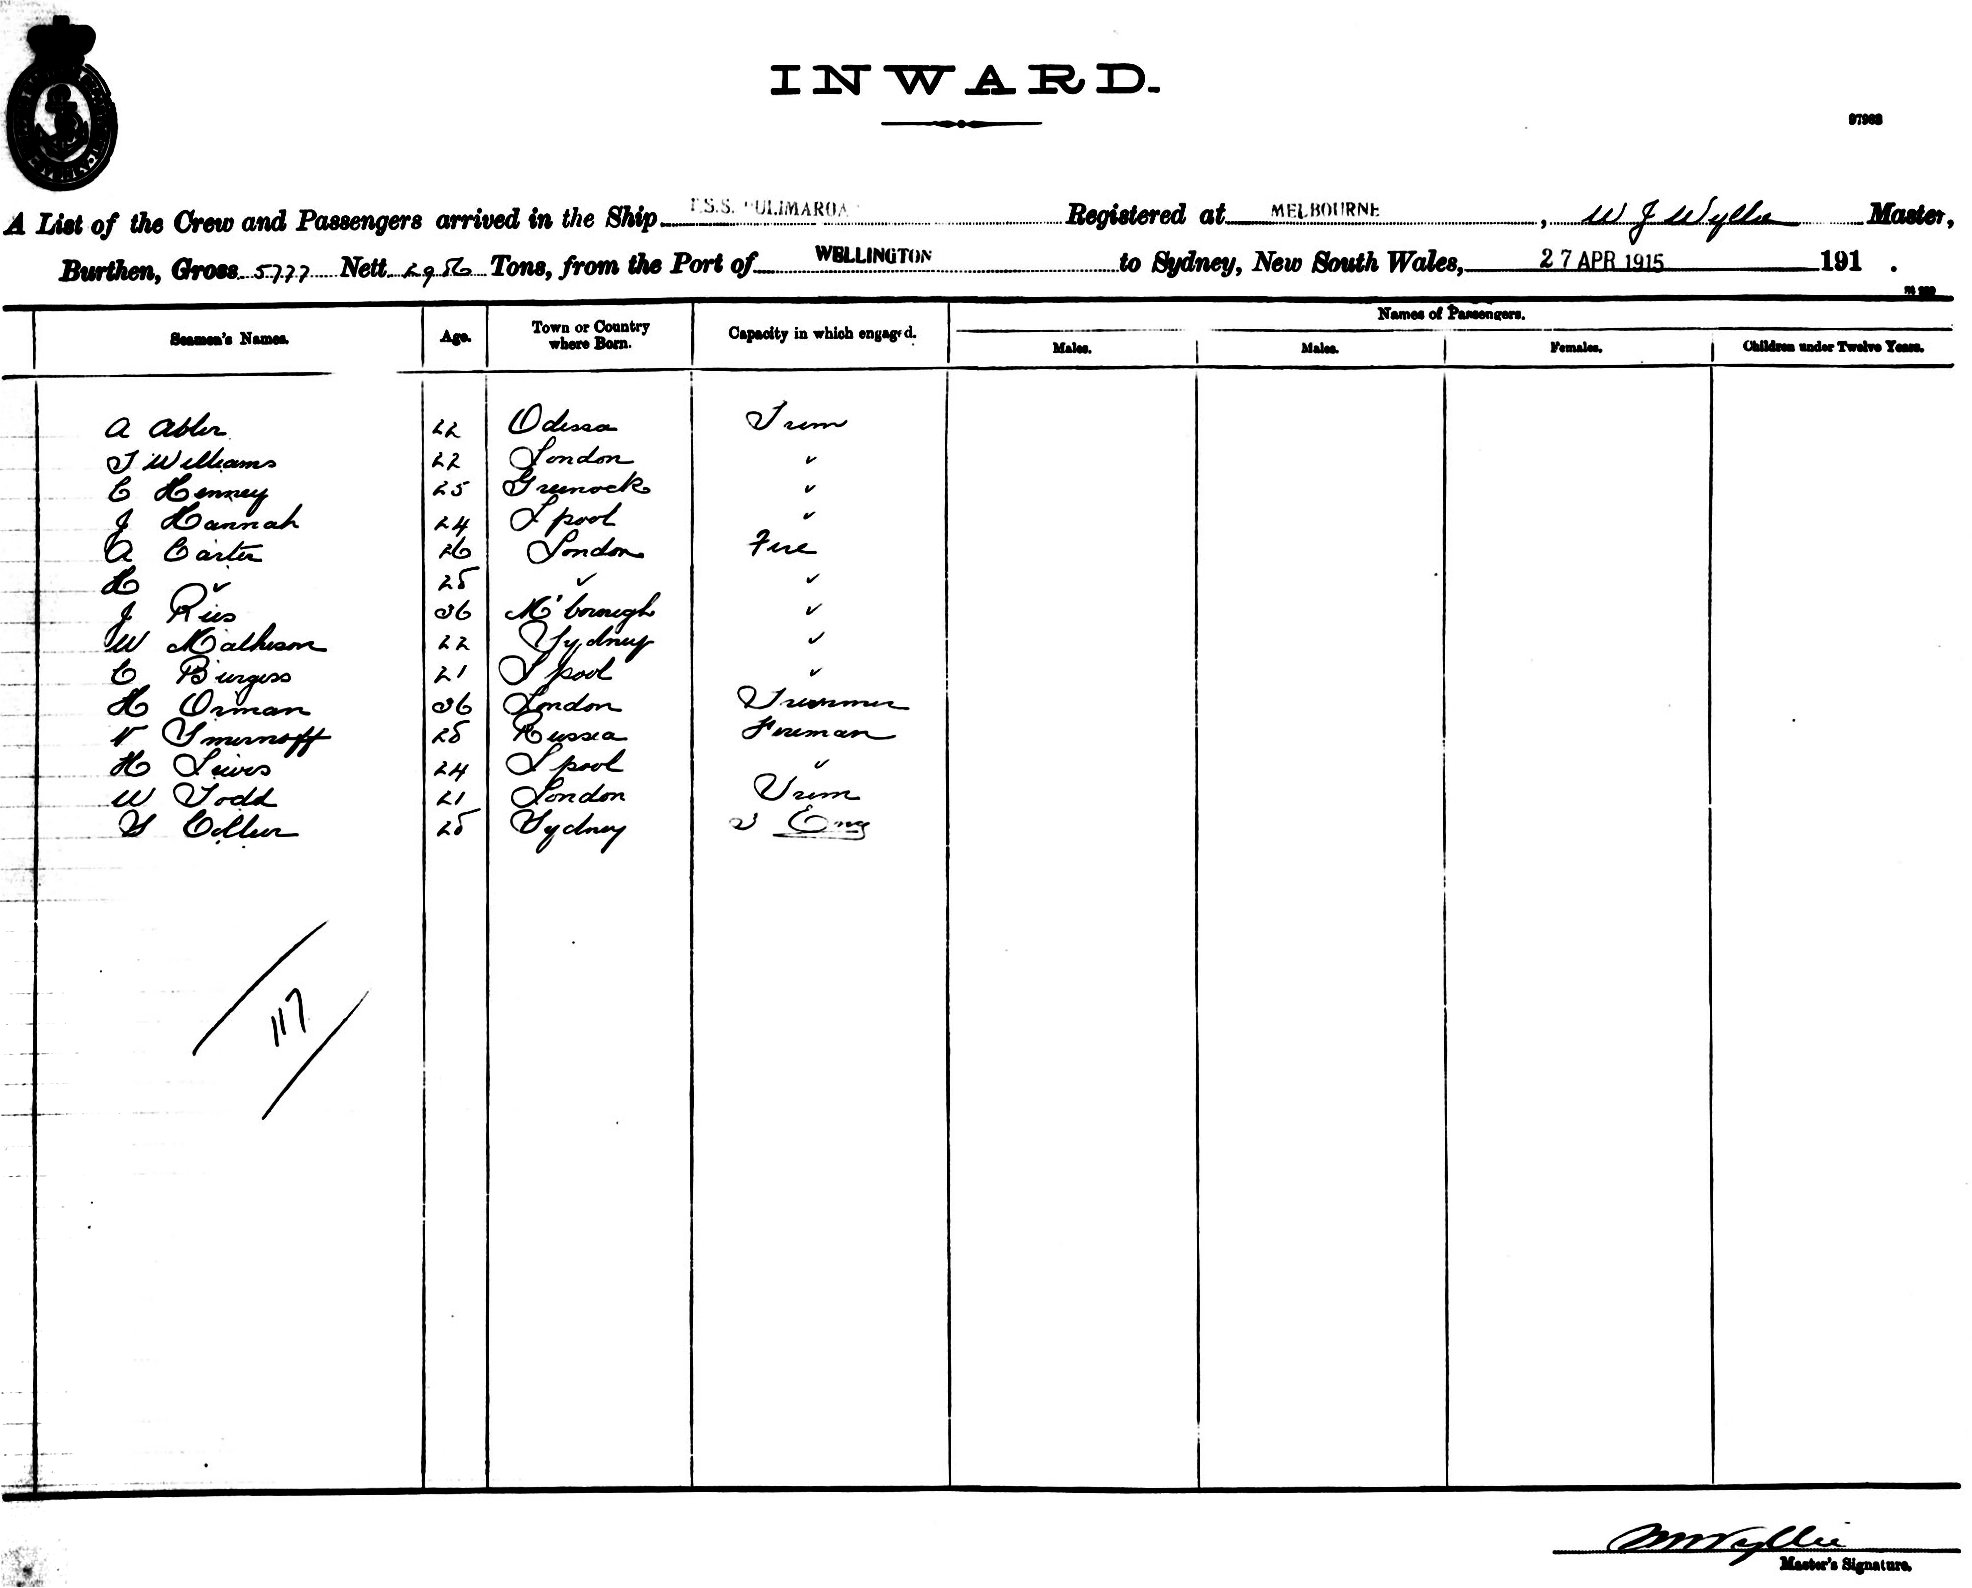 INWARD.
97988
A List of the Crew and Passengers arrived in the Ship T.S.S. ULIMAROA Registered at MELBOURNE, W J Wyllie Master,
Burthen, Gross 5777 Nett 2956 Tons, from the Port of WELLINGTON to Sydney, New South Wales, 27 APR 1915 191 .
Seamen's Names. Age. Town or Country where Born. Capacity in which engaged. Names of Passengers.
Males. Males. Females. Children under Twelve Years.
A Abler 22 Odessa Trim
T Williams 22 London "
C Henney 25 Greenock "
J Hannah 24 L'pool "
A Carter 26 London Fire
H " 25 " "
J Ries 36 M'borough "
W Matheson 22 Sydney "
C Burgess 21 L'pool "
H Orman 36 London Trimmer
V Smirnoff 25 Russia Fireman
H Lewis 24 L'pool "
W Todd 21 London Trim
S Collier 25 Sydney Eng
117
WJWyllie
Master's Signature.